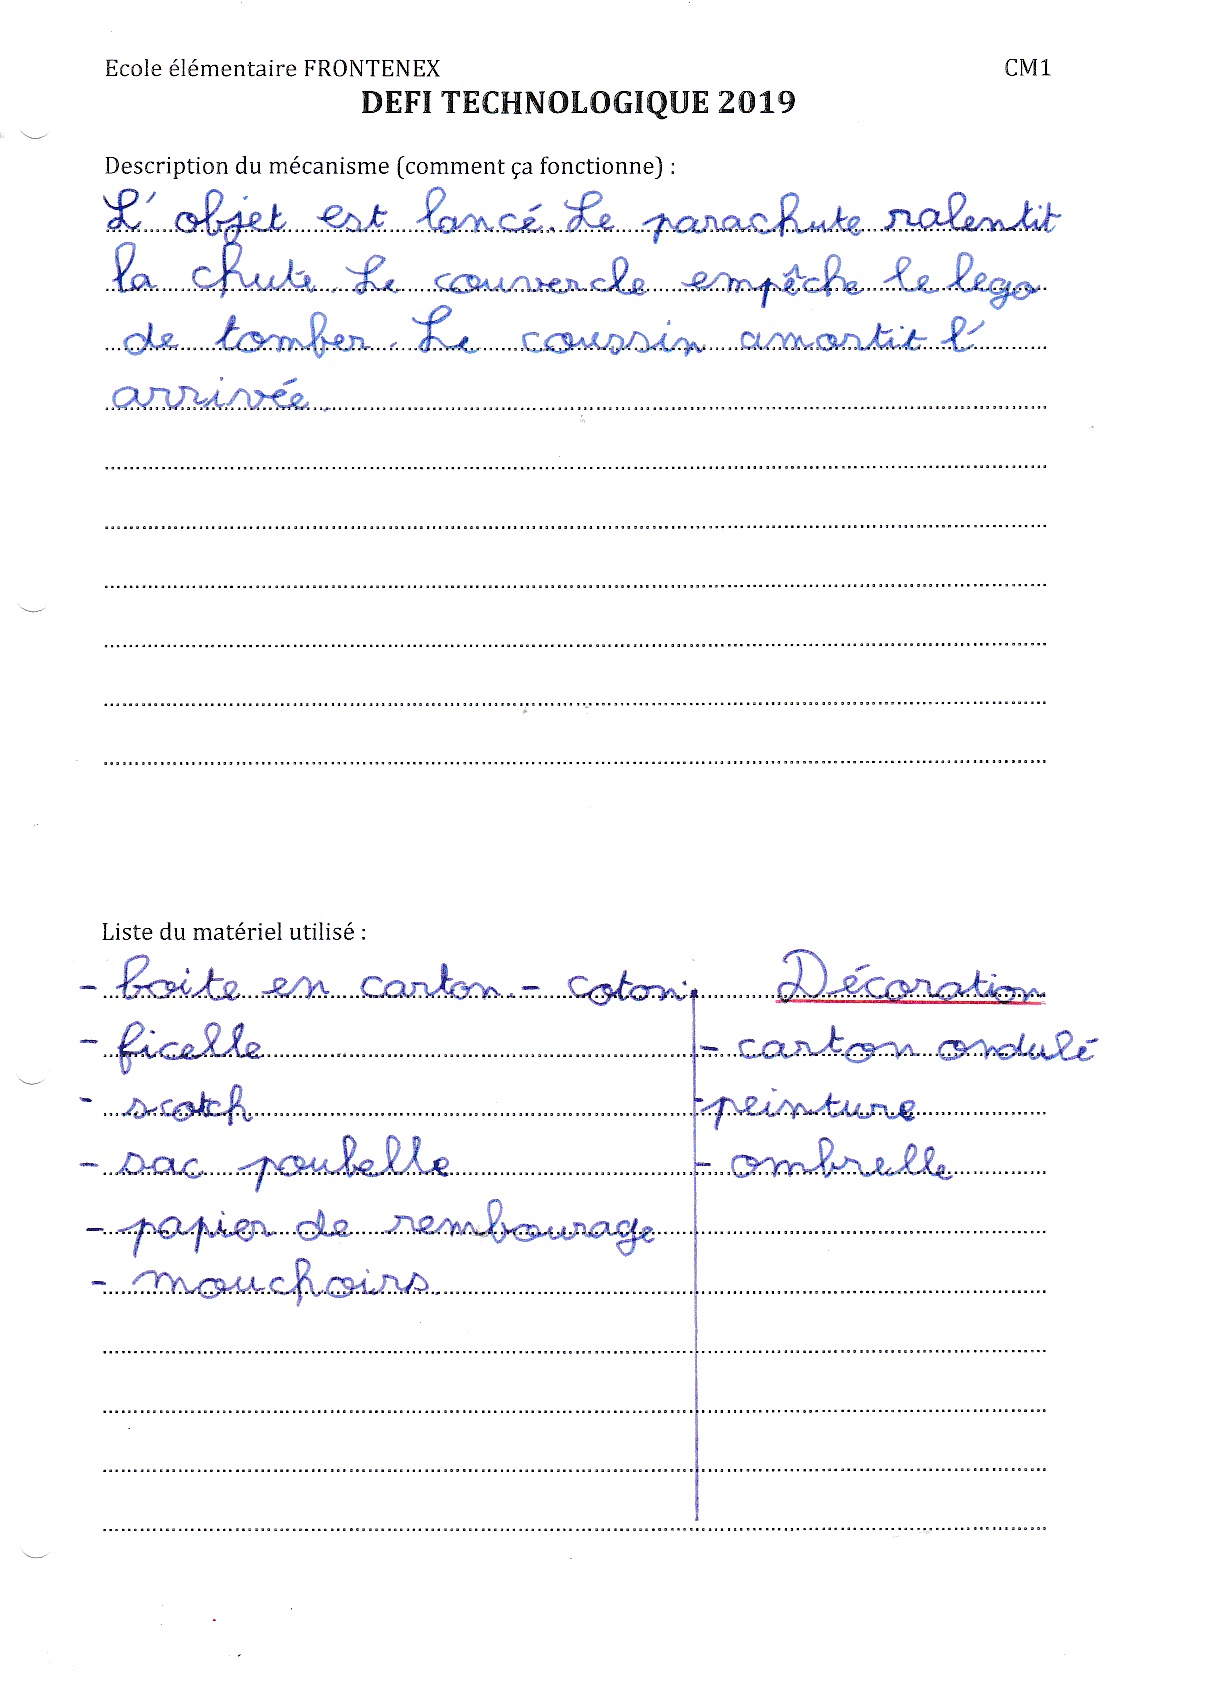 Ecole élémentaire FRONTENEX CM1
DEFI TECHNOLOGIQUE 2019
Description du mécanisme (comment ça fonctionne) :
L'objet est lancé. Le parachute ralentit
la chute. Le couvercle empêche le lego
de tomber. Le coussin amortit l'
arrivée.
Liste du matériel utilisé :
- boite en carton - coton Décoration
- ficelle - carton ondulé
- scotch - peinture
- sac poubelle - ombrelle
- papier de rembourage
- mouchoirs